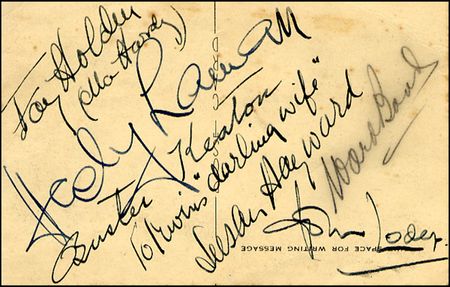 Fay Holden
(Ma Hardy)
Hedy Lamarr
Buster Keaton
To "darling wife"
Susan Hayward
Ward Bond
John Loder
SPACE FOR WRITING MESSAGE